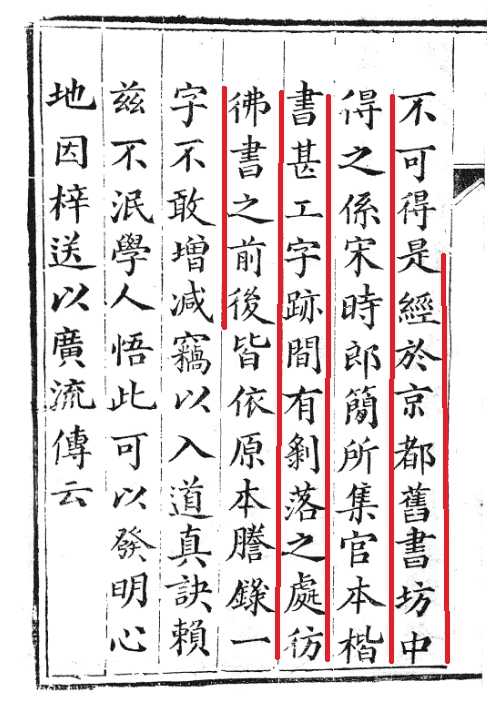 不可得是經於京都舊書坊中
得之係宋時郎簡所集官本楷
書甚工字跡間有剝落之處彷
彿書之前後皆依原本謄錄一
字不敢增減竊以入道真訣賴
茲不泯學人悟此可以發明心
地因梓送以廣流傳云